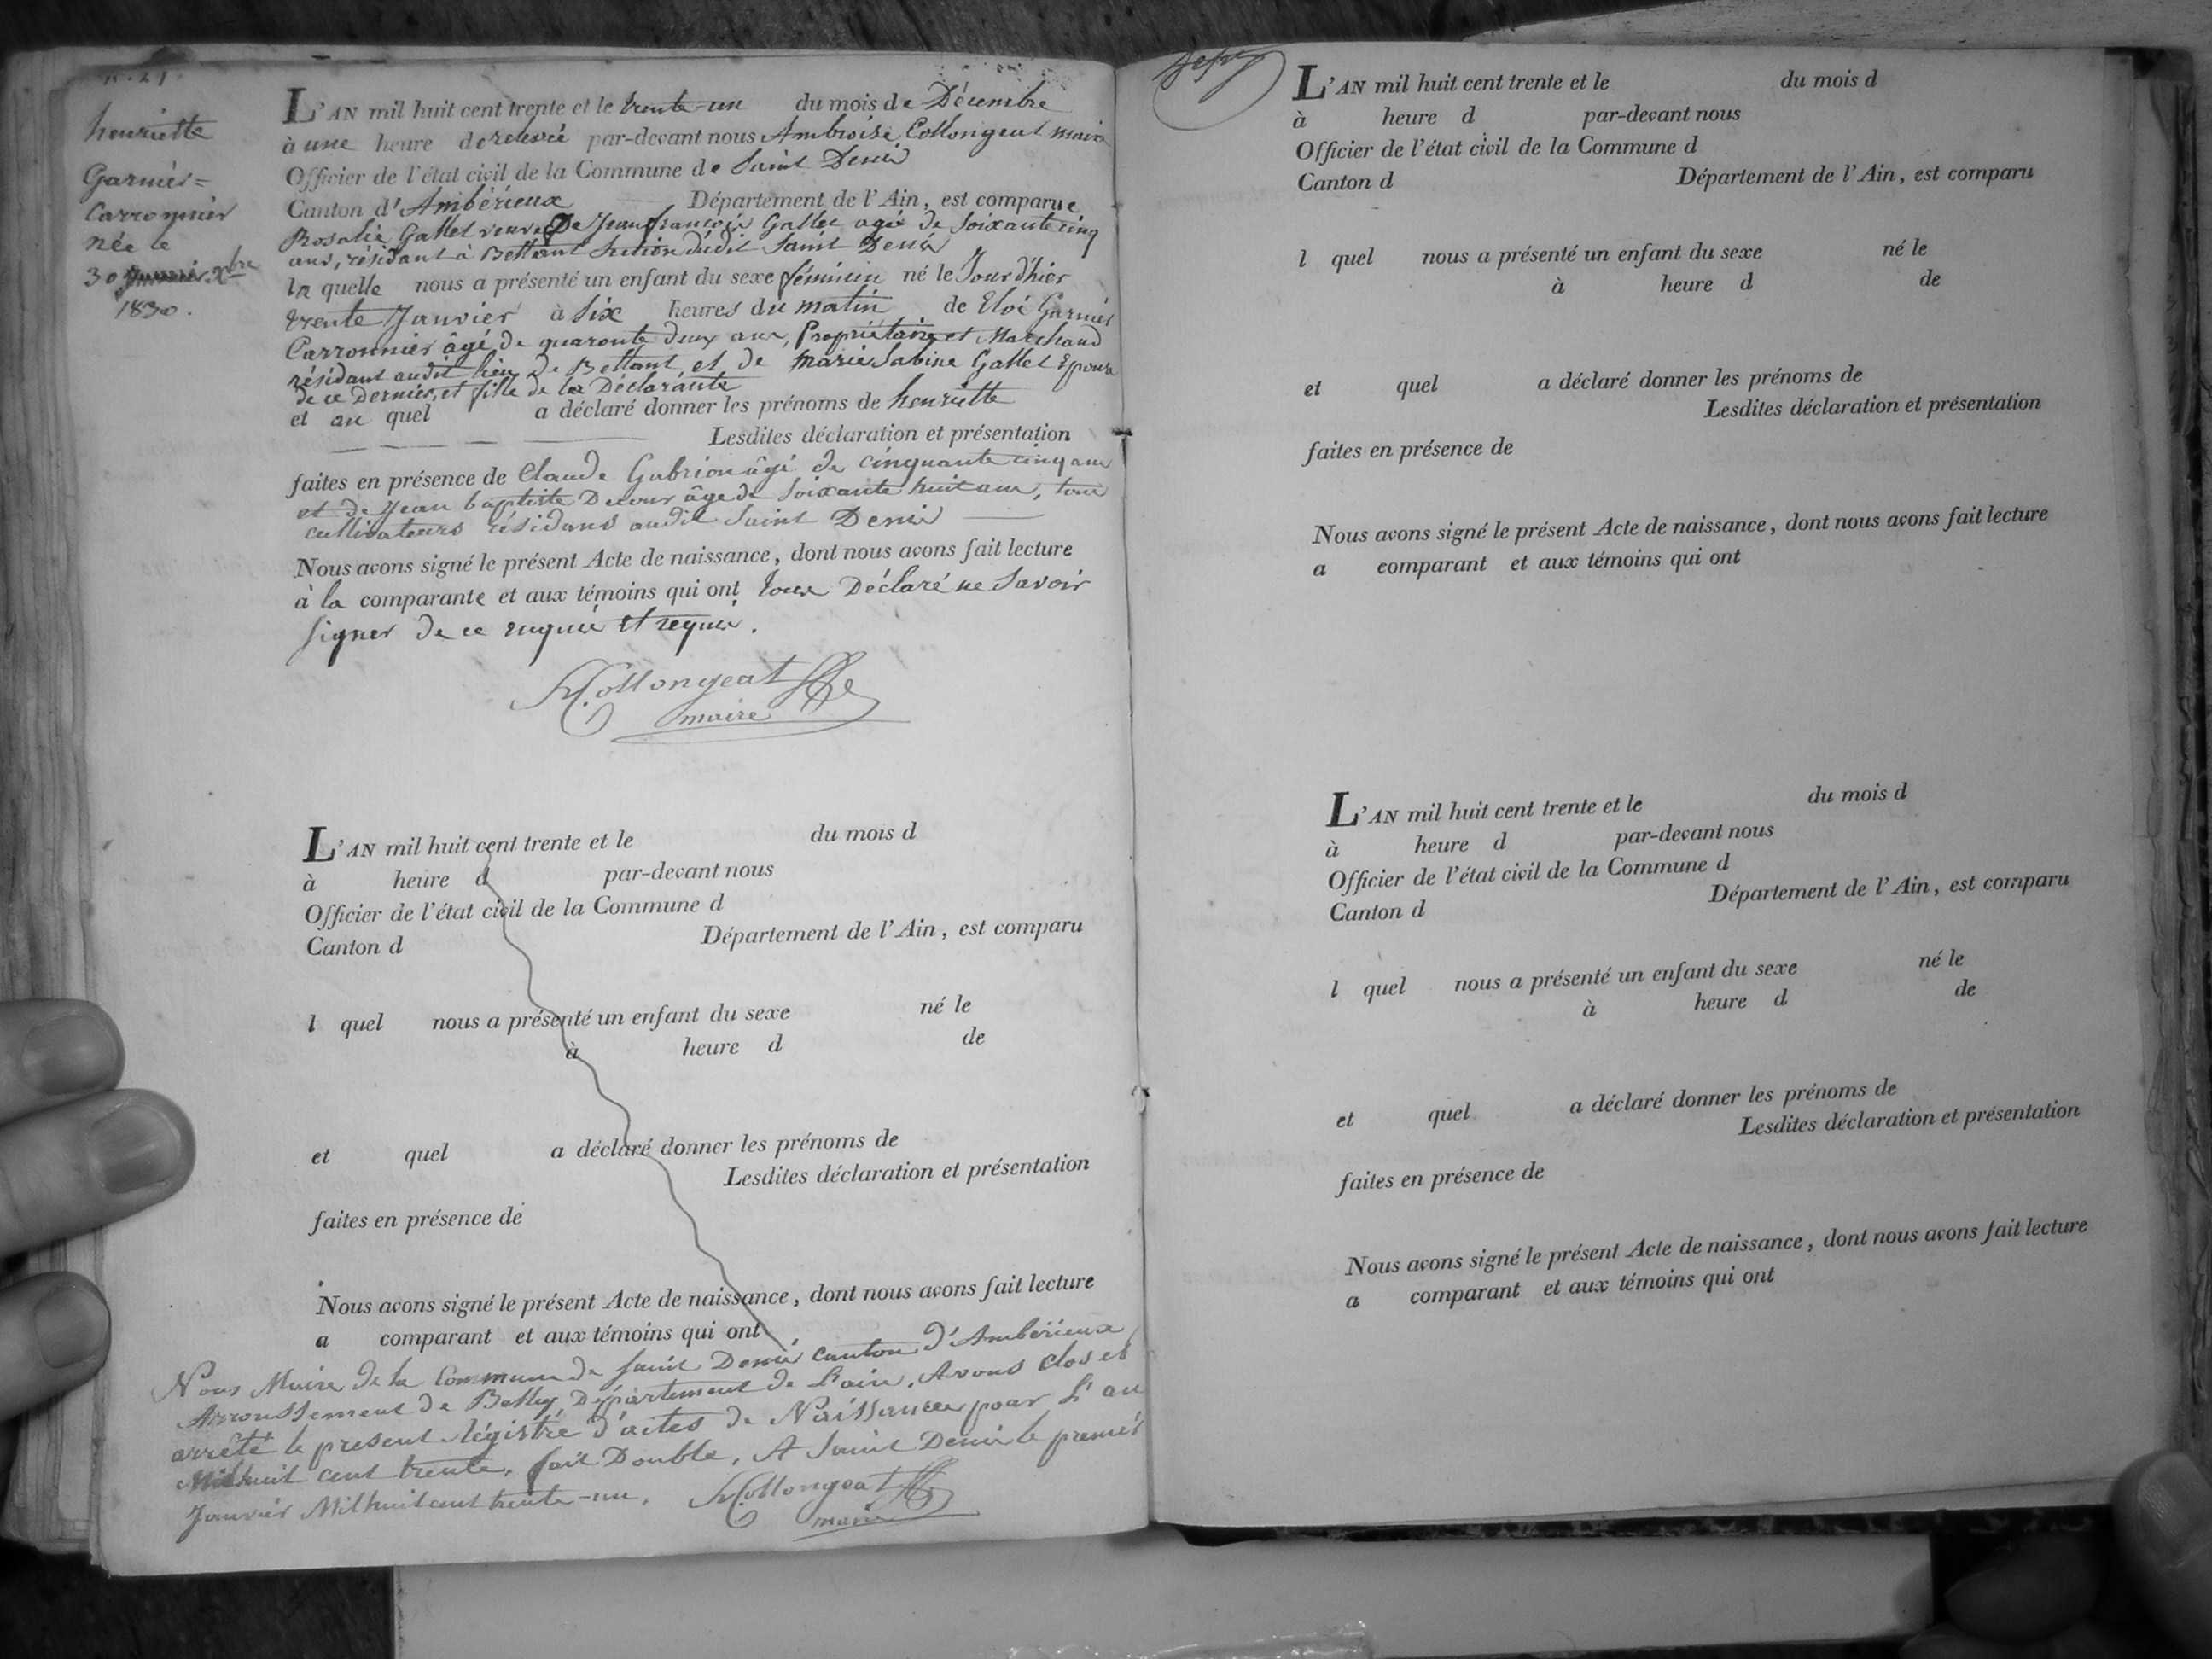 n. 21.
henriette
Garnier=
Carronnier
née le
30 Janvier Xbre
1830.
L'AN mil huit cent trente et le trente-un du mois de Décembre
à une heure de relevée par-devant nous Ambroise Collongeat maire
Officier de l'état civil de la Commune de Saint Denis
Canton d'Ambérieux Département de l'Ain, est comparue
Rosalie Gallet veuve De Jean françois Gallet agée de Soixante cinq
ans, résidant à Bettant Section dudit Saint Denis
la quelle nous a présenté un enfant du sexe féminin né le Jour d'hier
trente Janvier à Six heures du matin de Eloi Garnier
Carronnier âgé de quarante deux ans, Propriétaire et Marchand
résidant audit lieu De Bettant, et de Marie Sabine Gallet Epouse
de ce Dernier, et fille de la Déclarante
et au quel a déclaré donner les prénoms de henriette
Lesdites déclaration et présentation
faites en présence de Claude Gabrion âgé de cinquante cinq ans
et de Jean baptiste Decour âgé de Soixante huit ans, tous
cultivateurs résidans audit Saint Denis
Nous avons signé le présent Acte de naissance, dont nous avons fait lecture
à la comparante et aux témoins qui ont tous Déclaré ne Savoir
signer de ce enquis et requis.
Collongeat
maire
L'AN mil huit cent trente et le du mois d
à heure d par-devant nous
Officier de l'état civil de la Commune d
Canton d Département de l'Ain, est comparu
l quel nous a présenté un enfant du sexe né le
à heure d de
et quel a déclaré donner les prénoms de
Lesdites déclaration et présentation
faites en présence de
Nous avons signé le présent Acte de naissance, dont nous avons fait lecture
a comparant et aux témoins qui ont
Nous Maire de la Commune de Saint Denis canton d'Ambérieux
Arroussement de Belley, Département de L'ain, Avons clos et
arrêté le present régistre d'actes de Naissances pour L'an
Mil huit cent trente, fait Double, A Saint Denis le premier
Janvier Mil huit cent trente-un. Collongeat
maire
L'AN mil huit cent trente et le du mois d
à heure d par-devant nous
Officier de l'état civil de la Commune d
Canton d Département de l'Ain, est comparu
l quel nous a présenté un enfant du sexe né le
à heure d de
et quel a déclaré donner les prénoms de
Lesdites déclaration et présentation
faites en présence de
Nous avons signé le présent Acte de naissance, dont nous avons fait lecture
a comparant et aux témoins qui ont
L'AN mil huit cent trente et le du mois d
à heure d par-devant nous
Officier de l'état civil de la Commune d
Canton d Département de l'Ain, est comparu
l quel nous a présenté un enfant du sexe né le
à heure d de
et quel a déclaré donner les prénoms de
Lesdites déclaration et présentation
faites en présence de
Nous avons signé le présent Acte de naissance, dont nous avons fait lecture
a comparant et aux témoins qui ont